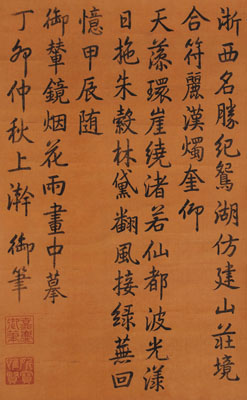 浙西名勝紀鴛湖仿建山莊境
合符麗漢燭奎仰
天藻環崖繞渚若仙都波光漾
日拖朱縠林黛翻風接綠蕪回
憶甲辰随
御輦鏡烟花雨畫中摹
丁卯仲秋上澣 御筆